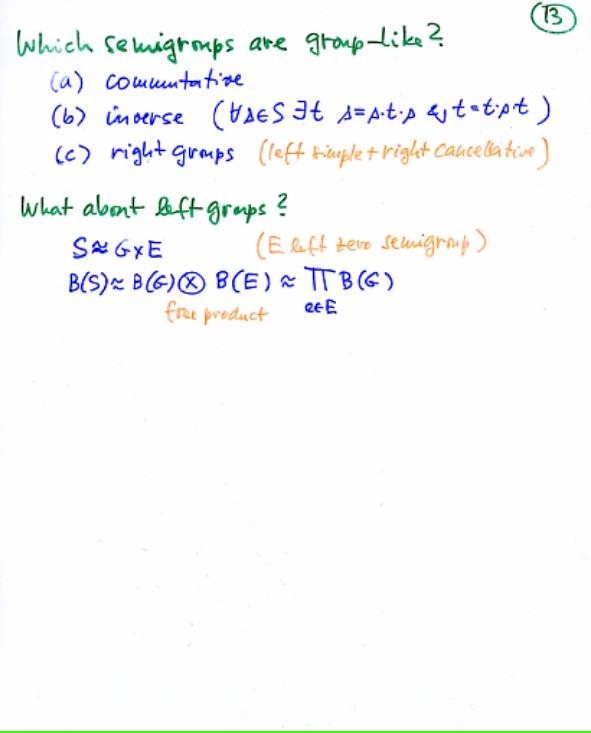 13
Which semigroups are group-like?
(a) commutative
(b) inverse (∀s∈S ∃t s=s·t·s & t=t·s·t)
(c) right groups (left simple + right cancellative)
What about left groups?
S≈G×E (E left zero semigroup)
B(S)≈B(G)⊗B(E)≈∏B(G)
free product e∈E